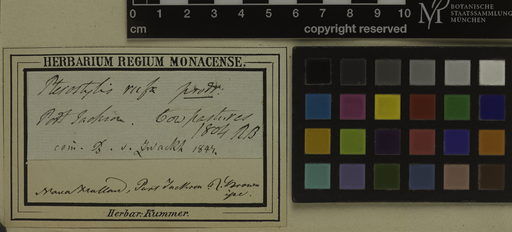 0 1 2 3 4 5 6 7 8 9 10
cm copyright reserved
BOTANISCHE
STAATSSAMMLUNG
MÜNCHEN
HERBARIUM REGIUM MONACENSE.
Pterostylis rufa prodr.
Port Jackson. Cowpastures
1804 RB
v. 1847.
Nova Holland, Port Jackson R. Brown
Herbar. Kummer.